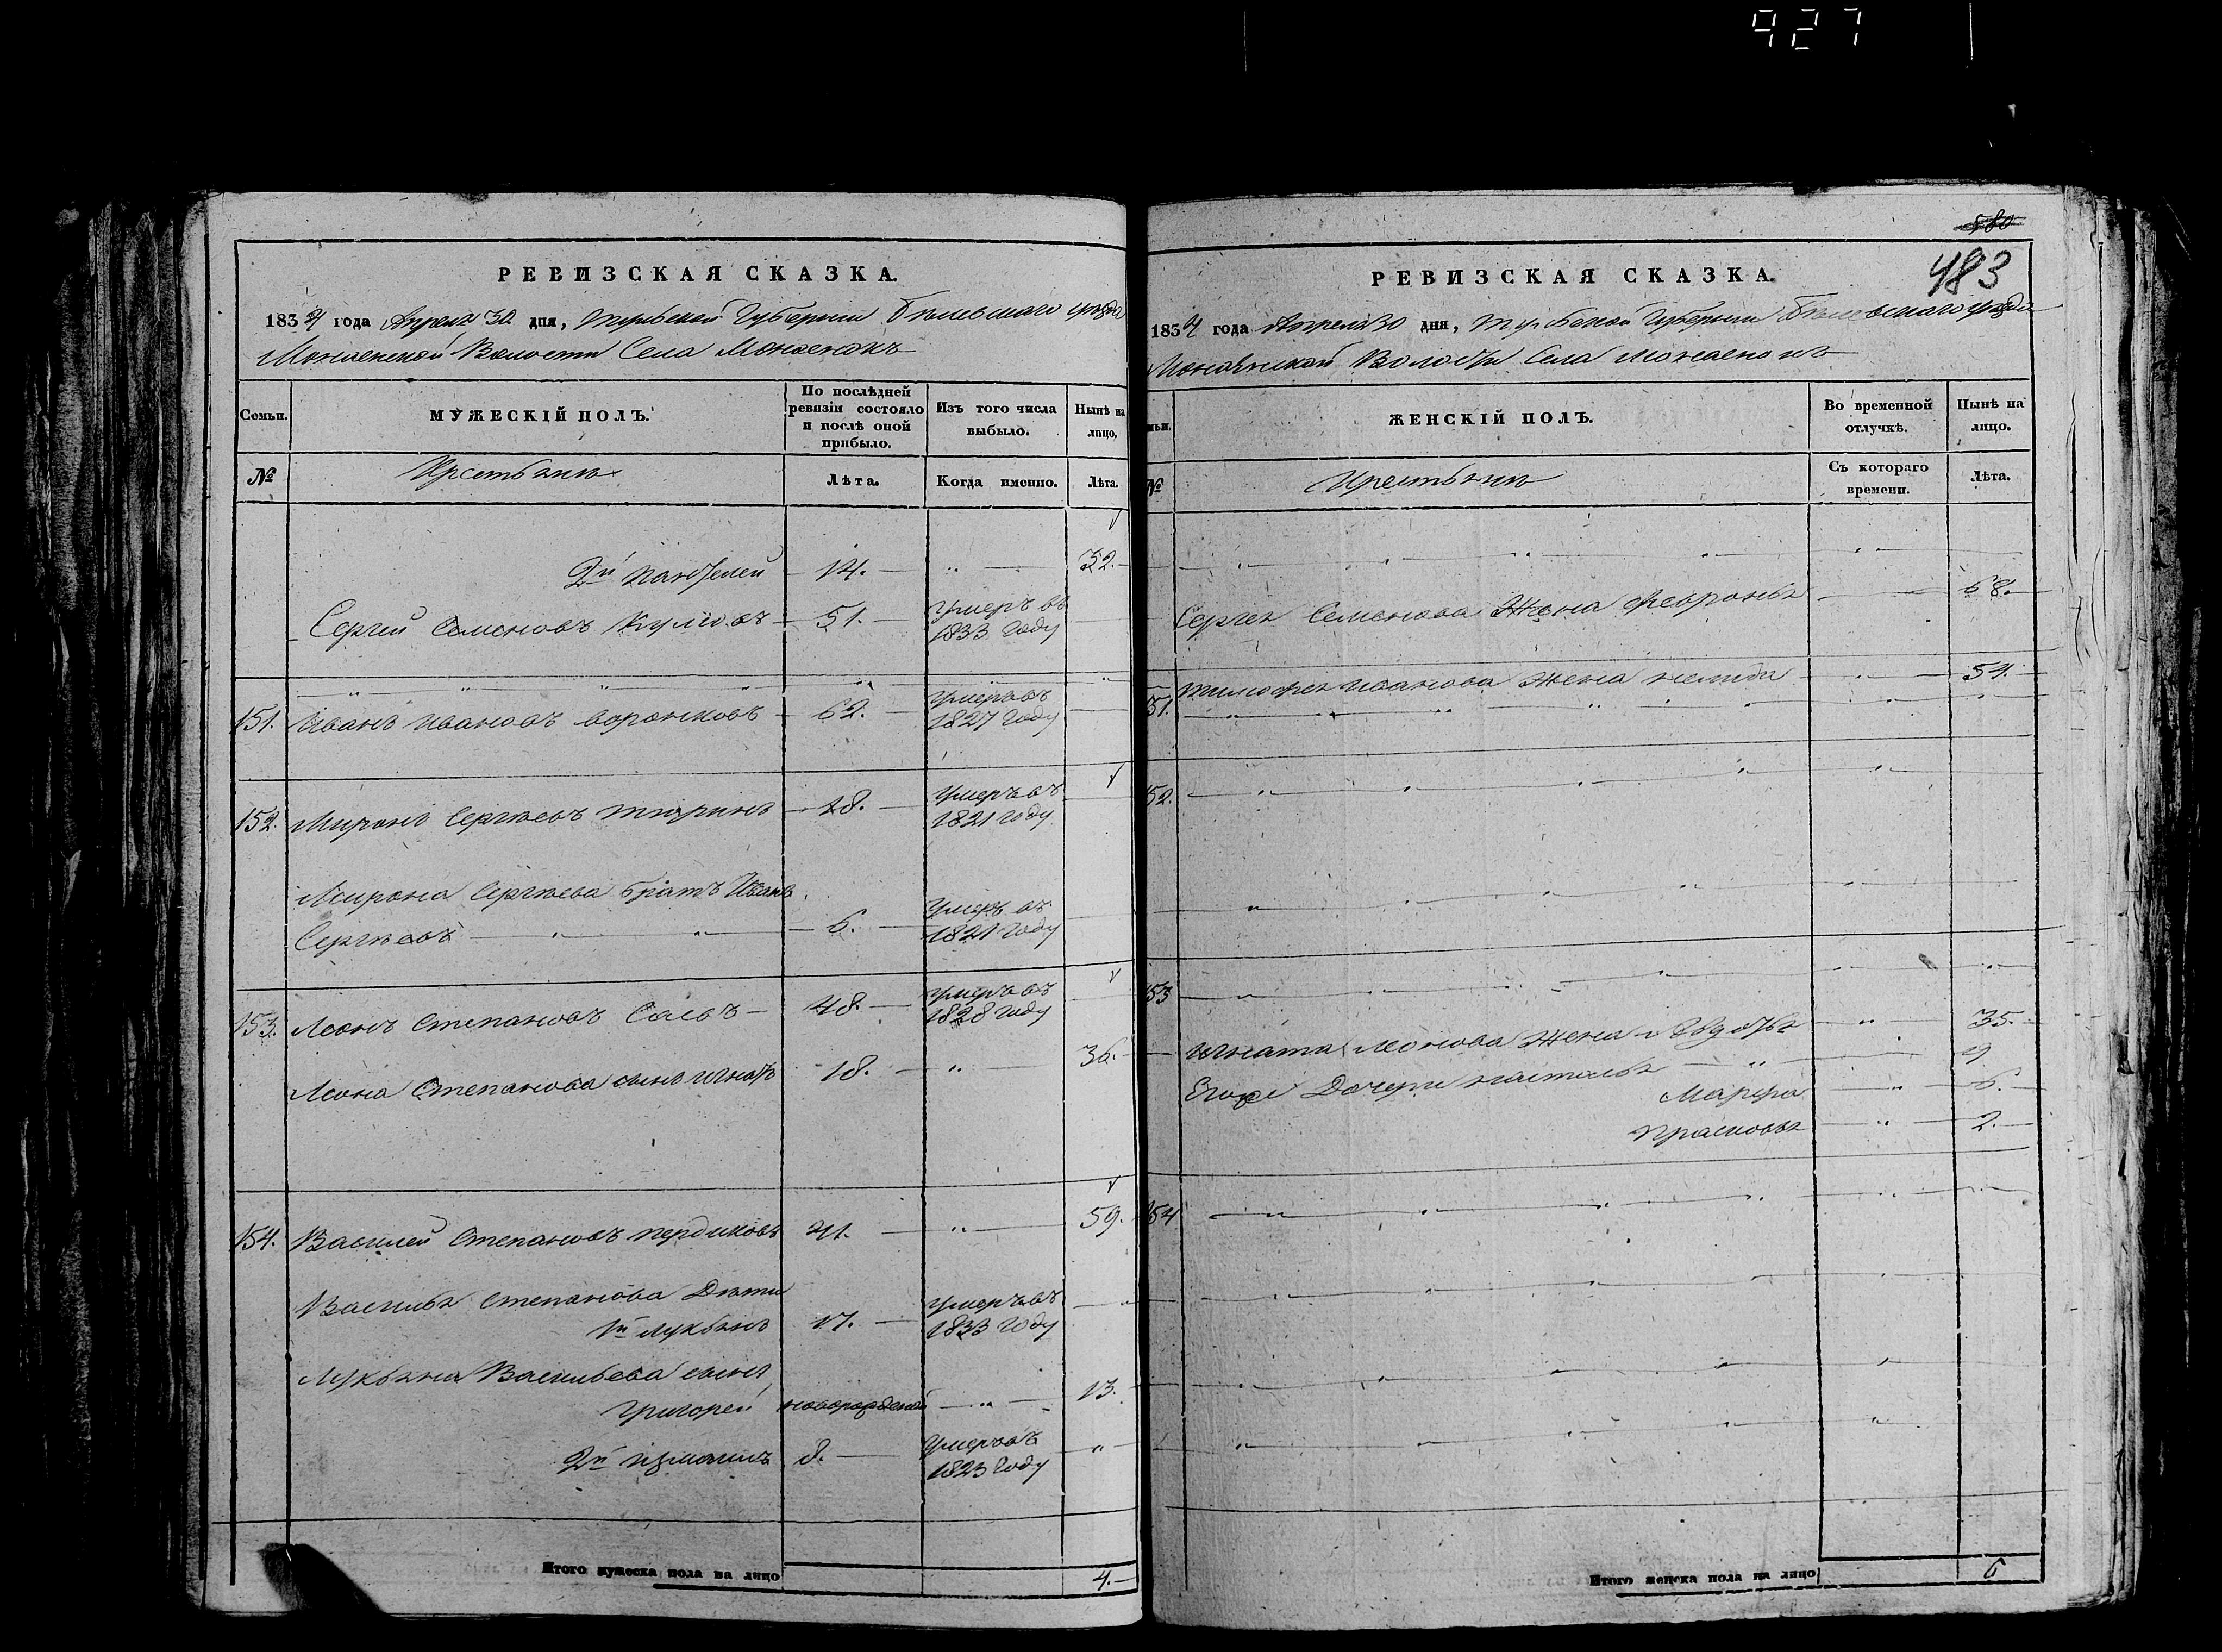 927
РЕВИЗСКАЯ СКАЗКА.
1834 года Апреля 30 дня, Тульской Губернии Бѣлевскаго уѣзда
Волости Села
Семьи.
МУЖЕСКІЙ ПОЛЪ.
По послѣдней ревизіи состояло и послѣ оной прибыло.
Изъ того числа выбыло.
Нынѣ на лицо,
№
Крестьяне
Лѣта.
Когда именно.
Лѣта.
2й Пантелей 14. 32.
Сергей Семеновъ 51. Умеръ въ 1833 году
151. Иванъ Ивановъ Воронковъ 62. Умеръ въ 1827 году
152. Миронъ Сергѣевъ 18. Умеръ въ 1821 году
Мирона Сергѣева братъ Иванъ
Сергѣевъ 6. Умеръ въ 1821 году
153. Леонъ Степановъ 48. Умеръ въ 1828 году
Леона Степанова сынъ Игнатъ 18. 36.
154. Василей Степановъ 41. 59.
Василья Степанова Дѣти
1й Лукьянъ 17. Умеръ въ 1833 году
Лукьяна Васильева сынъ
Григорей новорожденой 13.
2й 8. Умеръ въ 1823 году
Итого мужеска пола на лицо 4.
580
483
РЕВИЗСКАЯ СКАЗКА.
1834 года Апреля 30 дня, Тульской Губернии Бѣлевскаго уѣзда
Волости Села
ЖЕНСКІЙ ПОЛЪ.
Во временной отлучкѣ.
Нынѣ на лицо.
№
Крестьяне
Съ котораго времени.
Лѣта.
Сергея Семенова Жена Февронья 68.
Тимофея Иванова Жена 54.
151.
152.
153
Игната Леонова Жена Авдотья 35.
Егоже Дочери Настасья 9
Марфа 6.
Прасковья 2.
154
Итого женска пола на лицо 6